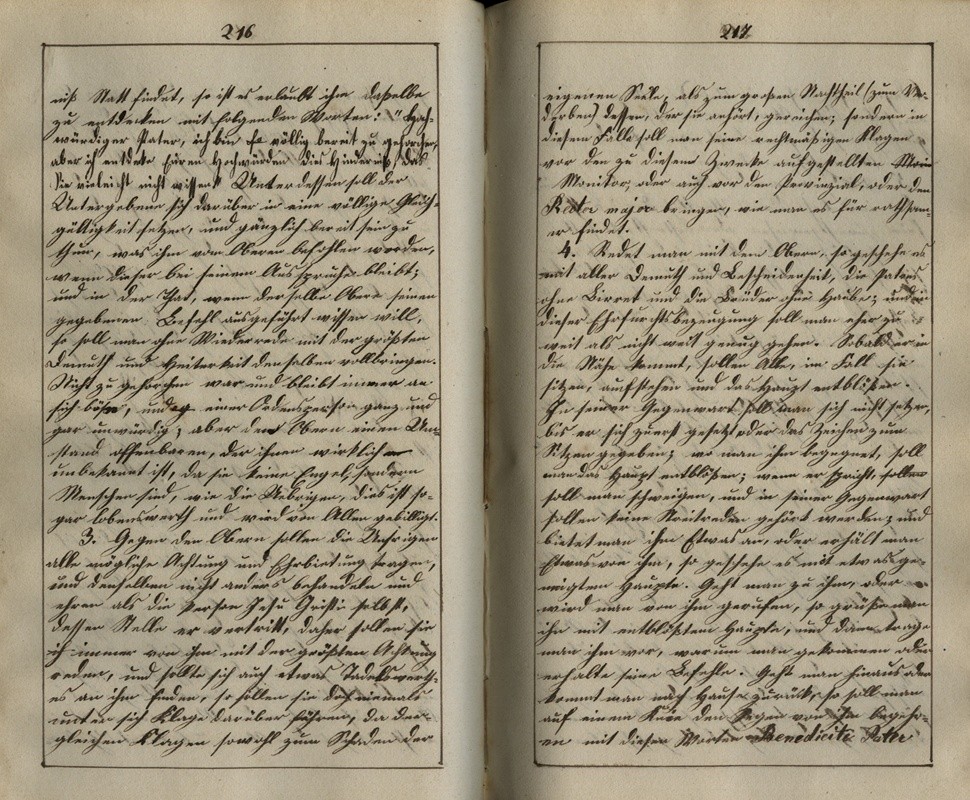 216
niß Statt findet, so ist es erlaubt ihm daßelbe
zu entdecken mit folgenden Worten: "Hoch-
würdiger Pater, ich bin völlig bereit zu gehorchen,
aber ich entdeke Euren Hochwürden dies Hinderniß, das
Sie vieleicht nicht wissen" Unterdessen soll der
Untergebene sich darüber in eine völlige Gleich-
gültigkeit setzen, und gänzlich bereit sein zu
thun, was ihm vom Obern befohlen worden,
wenn dieser bei seinem Ausspruche bleibt;
und in der That, wenn derselbe Obere seinen
gegebenen Befehl ausgeführt wissen will,
so soll man ohne Wiederrede mit der größten
Demuth und Heiterkeit denselben vollbringen.
Nicht zu gehorchen war und bleibt immer an
sich böse, und einer Ordensperson ganz und
gar unwürdig; aber dem Obern einen Um-
stand offenbaren, der ihnen wirklich
unbekannt ist, da sie keine Engel, sondern
Menschen sind, wie die Uebrigen, dies ist so-
gar lobenswerth und wird von Allen gebilligt.
3. Gegen den Obern sollen die Unsrigen
alle mögliche Achtung und Ehrbietung tragen,
und denselben nicht anders behandeln und
ehren als die Person Jesu Christi selbst,
dessen Stelle er vertritt, daher sollen sie
immer von ihm mit der größten Achtung
reden, und sollte sich auch etwas Tadelswerth-
es an ihm finden, so sollen sie doch niemals
unter sich Klage darüber führen, da der-
gleichen Klagen sowohl zum Schaden der
217
eigenen Seele, als zum großen Nachtheil (zum Ver-
derben) dessen, der sie anhört, gereichen; sondern in
diesem Falle soll man seine rechtmäßigen Klagen
vor den zu diesem Zwecke aufgestellten
Monitor, oder auch vor den Provinzial, oder den
Rector major bringen, wie man es für rathsam-
er findet.
4. Redet man mit dem Obern, so geschehe es
mit aller Demuth und Bescheidenheit, die Patres
ohne Birret und die Brüder ohne Haube; und in
dieser Ehrfurchtsbezeugung soll man eher zu
weit als nicht weit genug gehen. Sobald er in
die Nähe kommt, sollen Alle, im Fall sie
sitzen, aufstehen und das Haupt entblößen.
In seiner Gegenwart soll man sich nicht setzen,
bis er sich zuerst gesetzt oder das Zeichen zum
Sitzen gegeben; wo man ihm begegnet, soll
man das Haupt entblößen; wenn er spricht, sollen
soll man schweigen, und in seiner Gegenwart
sollen keine Streitreden gehört werden; und
bietet man ihm Etwas an, oder erhält man
Etwas von ihm, so geschehe es mit etwas ge-
neigtem Haupte. Geht man zu ihm, oder
wird man von ihm gerufen, so grüße man
ihn mit entblößtem Haupte, und dann trage
man ihm vor, warum man gekommen oder
erhalte seine Befehle. Geht man hinaus oder
kommt man nach Hause zurück, so soll man
auf einem Knie den Segen von ihm begehr-
en mit diesen Worten Benedicite Pater